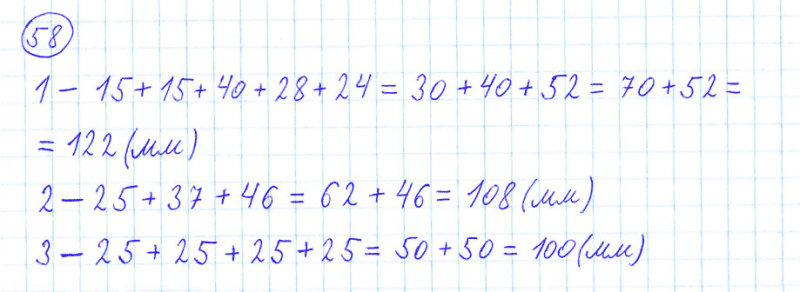 58
1 – 15 + 15 + 40 + 28 + 24 = 30 + 40 + 52 = 70 + 52 =
= 122 (мм)
2 – 25 + 37 + 46 = 62 + 46 = 108 (мм)
3 – 25 + 25 + 25 + 25 = 50 + 50 = 100 (мм)